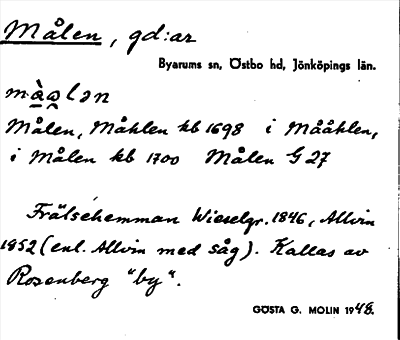 Målen, gd:ar
Byarums sn, Östbo hd, Jönköpings län.
Målen, Måhlen kb 1698 i Mååhlen,
i Målen kb 1700 Målen G 27
Frälsehemman Wieselgr. 1846, Allvin
1852 (enl. Allvin med såg). Kallas av
Rosenberg "by".
GÖSTA G. MOLIN 1948.